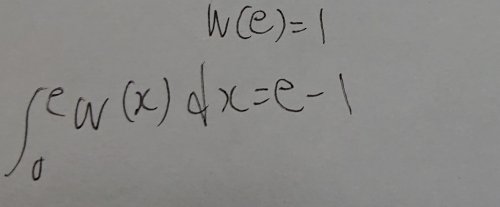 W(e)=1
∫₀ᵉ W(x) dx=e-1